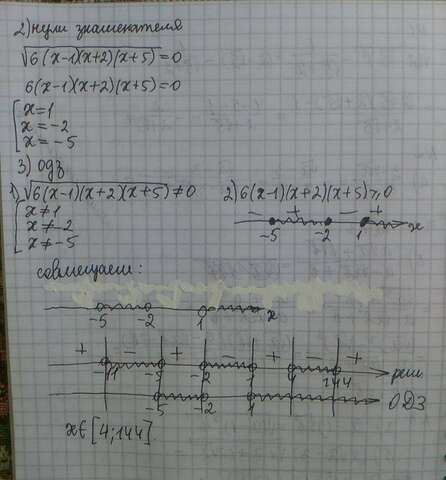 2) нули знаменателя
√6(x-1)(x+2)(x+5) = 0
6(x-1)(x+2)(x+5) = 0
[ x = 1
x = -2
x = -5
3) одз
1) √6(x-1)(x+2)(x+5) ≠ 0
x ≠ 1
x ≠ -2
x ≠ -5
2) 6(x-1)(x+2)(x+5) ≥ 0
- + - +
-5 -2 1 x
совмещаем:
-5 -2 1 x
+ - + - + - +
-11 -5 -2 1 4 144 реш
-5 -2 1 ОДЗ
x ∈ [4; 144]